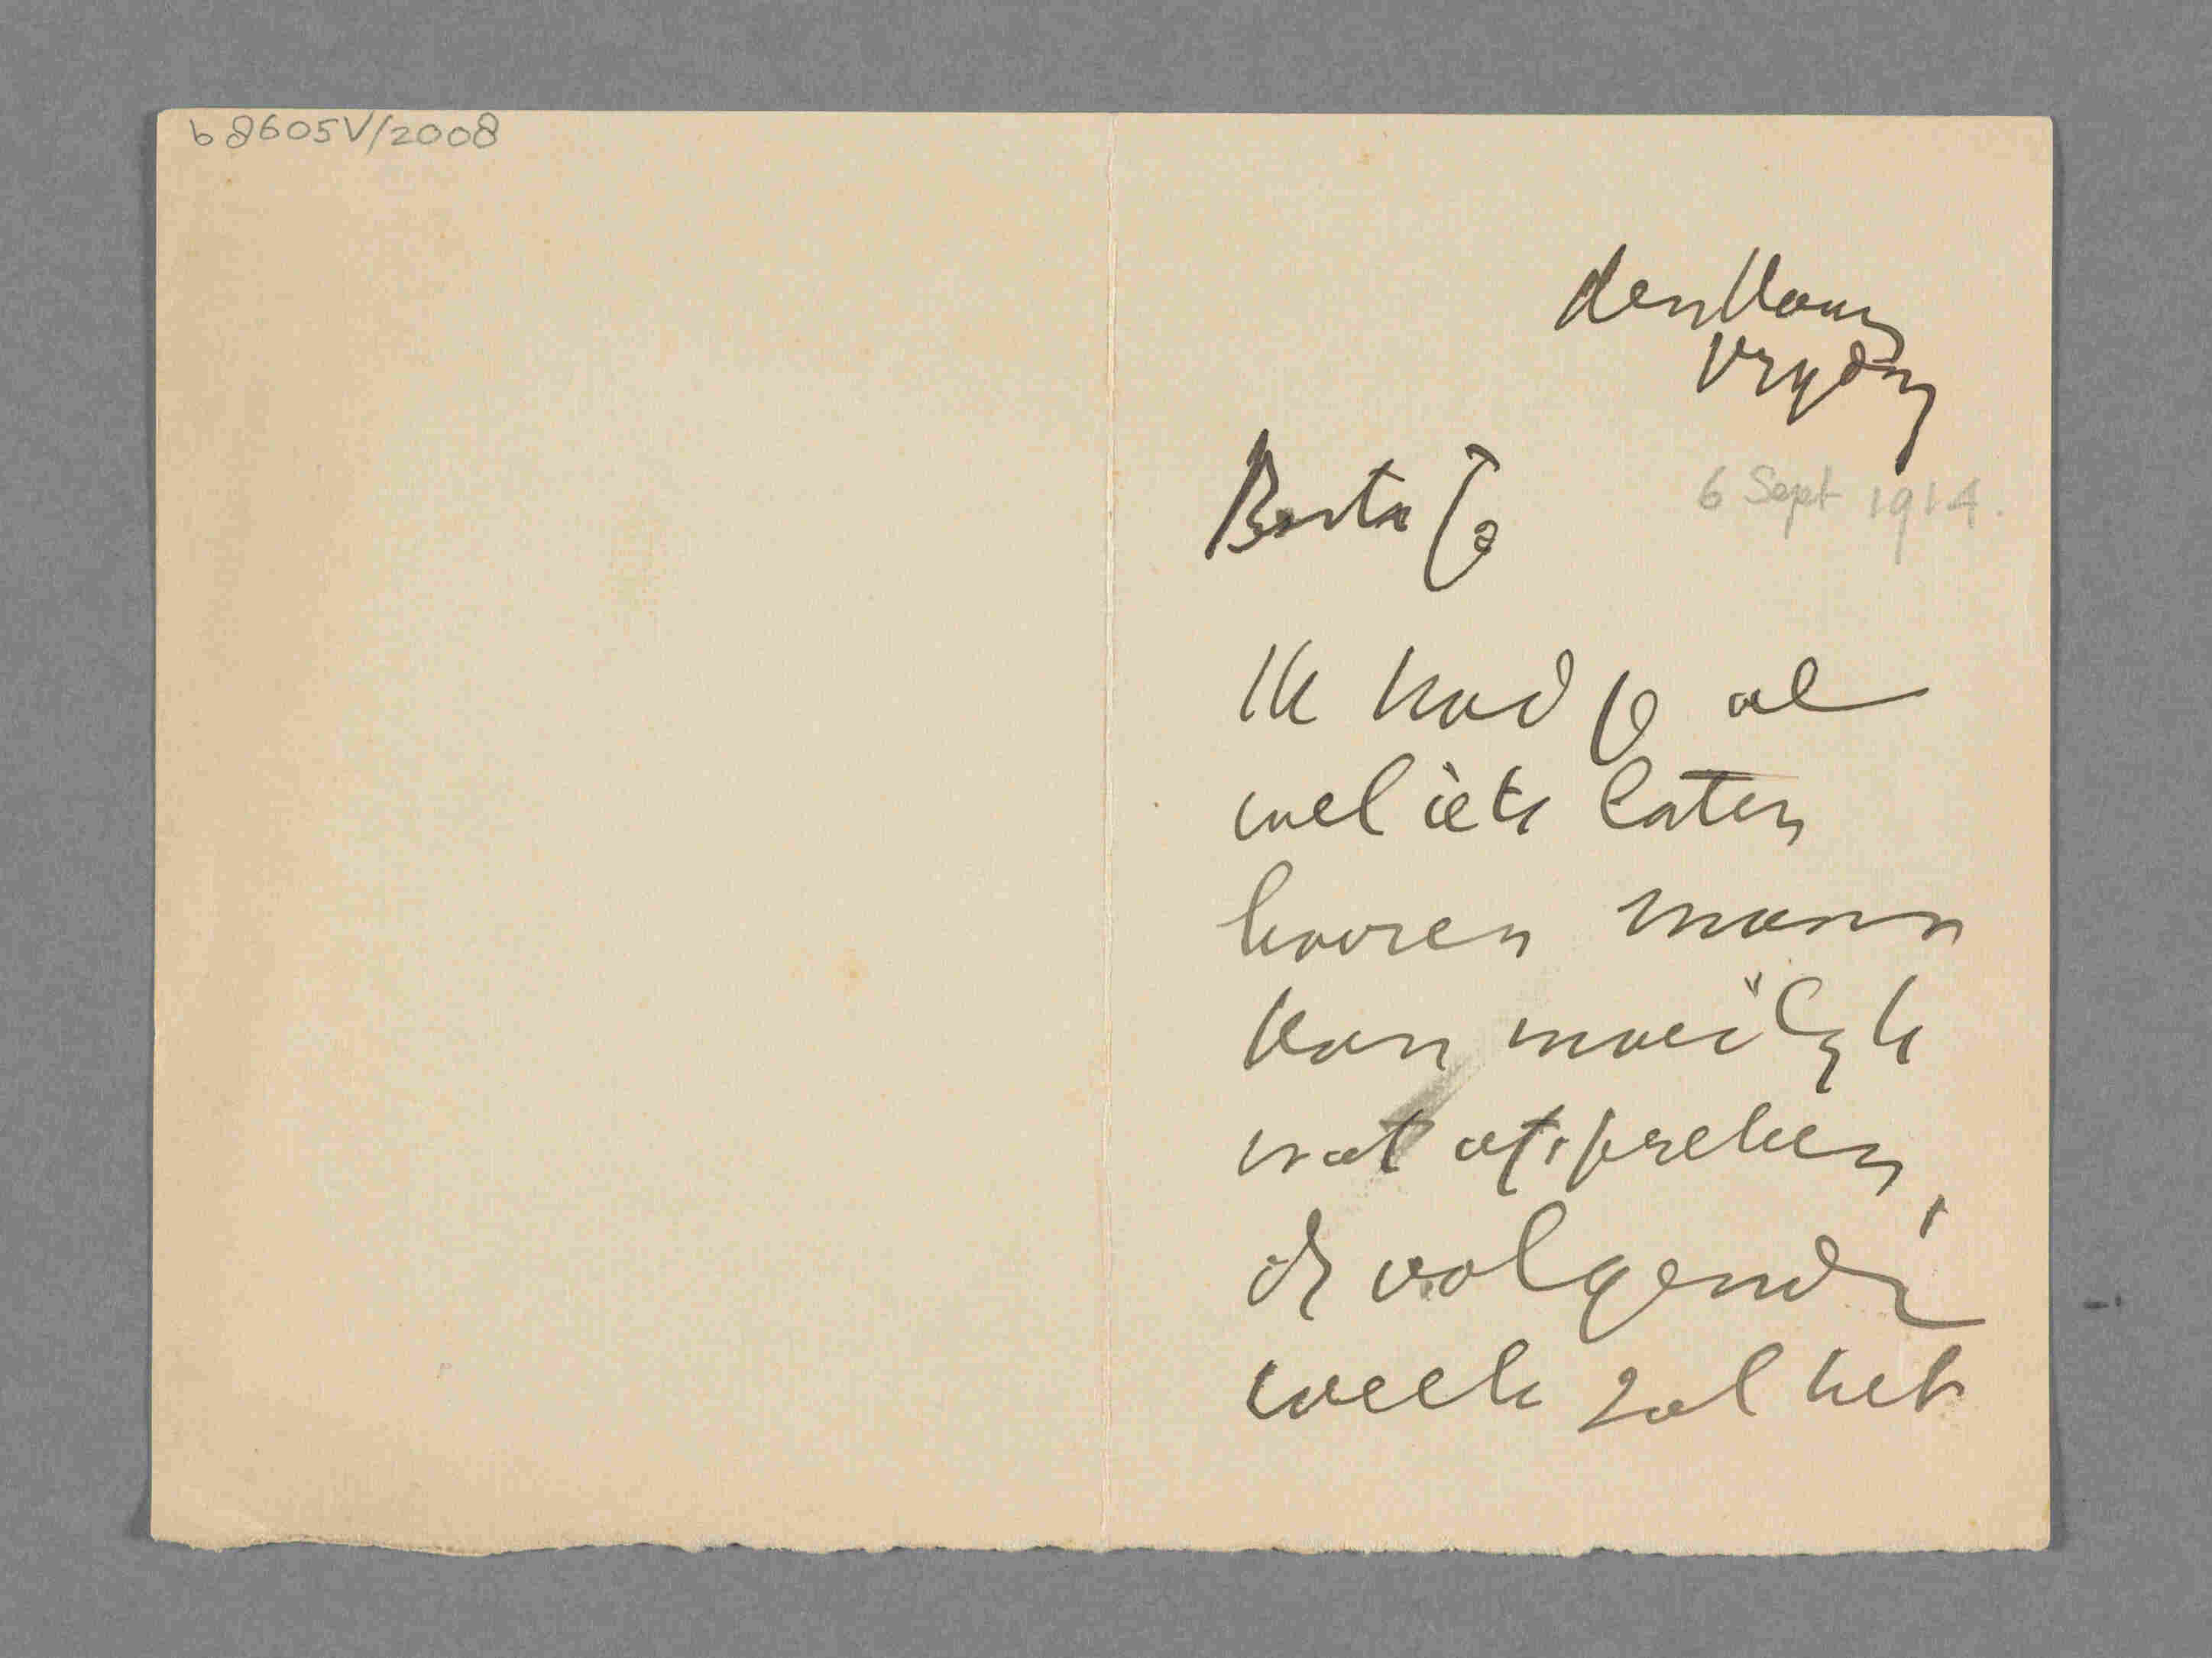 b 8605V/2008
den Haag
vrydag
6 Sept 1914.
Beste Jo
Ik had je al
wel iets laten
hooren maar
kan moeilyk
wat afspreken,
de volgende
week zal het